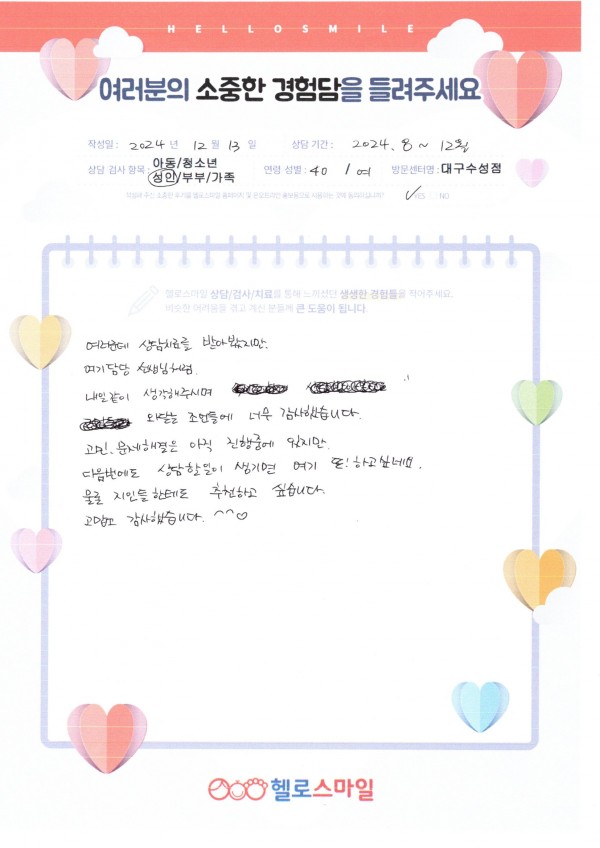 HELLOSMILE
여러분의 소중한 경험담을 들려주세요
작성일 : 2024 년 12 월 13 일 상담 기간 : 2024. 8 ~ 12월
상담 검사 항목 : 아동/청소년 성인/부부/가족 연령 성별 : 40 / 여 방문센터명 : 대구수성점
작성해 주신 소중한 후기를 헬로스마일 홈페이지 및 온오프라인 홍보용으로 사용하는 것에 동의하십니까? ✓YES | NO
헬로스마일 상담/검사/치료를 통해 느끼셨던 생생한 경험들을 적어주세요.
비슷한 어려움을 겪고 계신 분들께 큰 도움이 됩니다.
여러군데 상담치료를 받아봤지만.
여기담당 선생님처럼.
내일같이 생각해주시며
와닿는 조언들에 너무 감사했습니다.
고민, 문제해결은 아직 진행중에 있지만.
다음번에도 상담할일이 생기면 여기 또! 하고싶네요.
물론 지인들한테도 추천하고 싶습니다.
고맙고 감사했습니다. ^^♡
헬로스마일